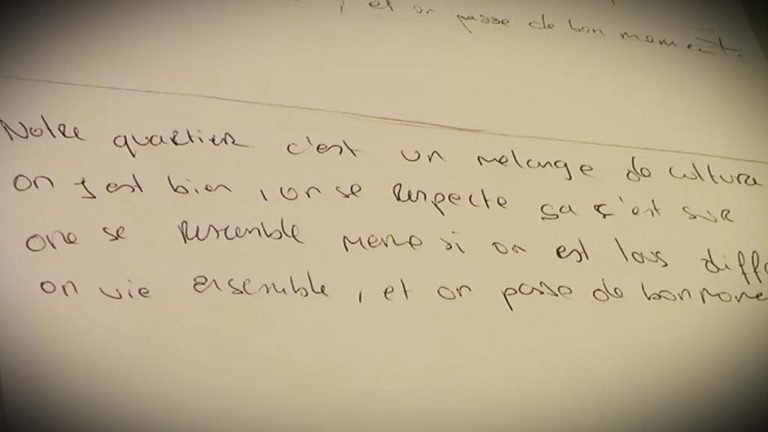 , et on passe de bon moment.
Notre quartier c'est un melange de cultura
on y est bien , on se respecte sa c'est sur
one se ressemble meme si on est tous diffé
on vie ensemble , et on passe de bon mome